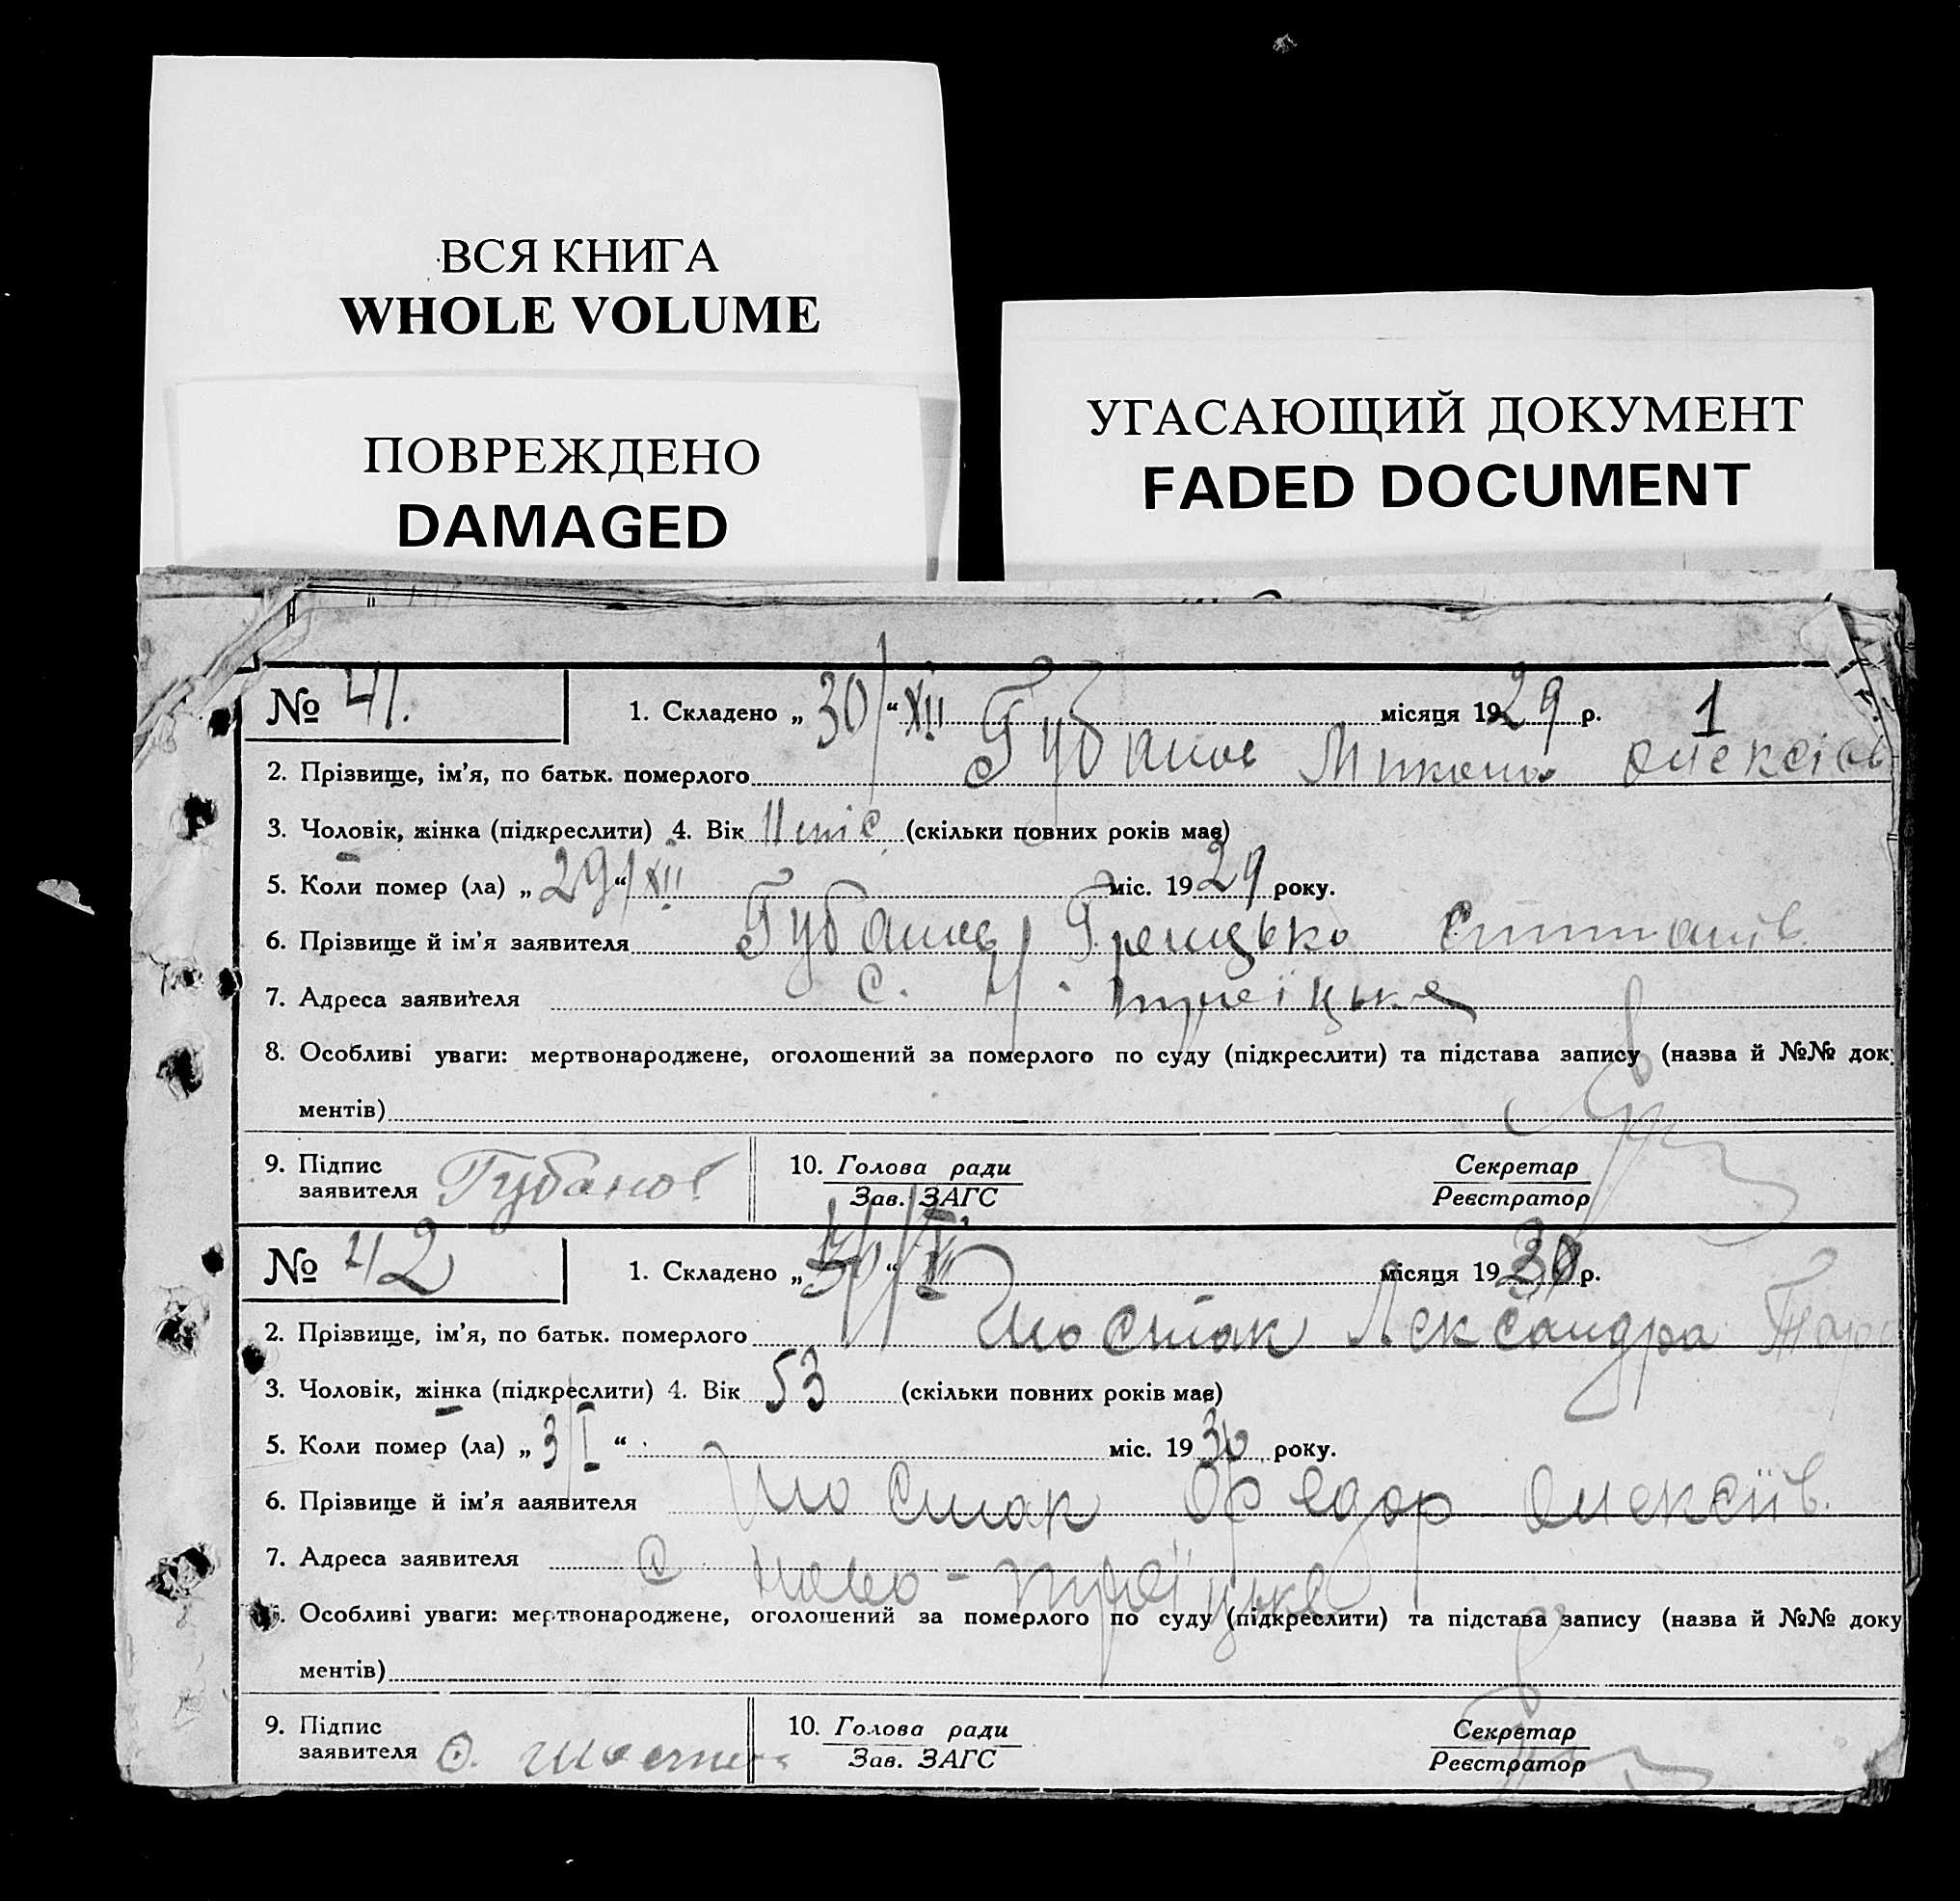 ВСЯ КНИГА
WHOLE VOLUME
ПОВРЕЖДЕНО
DAMAGED
УГАСАЮЩИЙ ДОКУМЕНТ
FADED DOCUMENT
№ 41. 1. Складено „ 30/ “ XII місяця 1929 р. 1
2. Прізвище, ім'я, по батьк. померлого Губанов Микола Олексієв
3. Чоловік, жінка (підкреслити) 4. Вік 11 (скільки повних років має)
5. Коли помер (ла) „ 29/ “ XII міс. 1929 року.
6. Прізвище й ім'я заявителя Губанов Грицько
7. Адреса заявителя с. Н. Троїцьке
8. Особливі уваги: мертвонароджене, оголошений за померлого по суду (підкреслити) та підстава запису (назва й №№ доку
ментів)
9. Підпис заявителя Губанов 10. Голова ради Секретар
Зав. ЗАГС Реєстратор
№ 42 1. Складено „ “ місяця 1930 р.
2. Прізвище, ім'я, по батьк. померлого Шостак Лександра
3. Чоловік, жінка (підкреслити) 4. Вік 53 (скільки повних років має)
5. Коли помер (ла) „ 3/I “ міс. 1930 року.
6. Прізвище й ім'я ааявителя Шостак Федор Олексіїв.
7. Адреса заявителя с Ново-Троїцьке
Особливі уваги: мертвонароджене, оголошений за померлого по суду (підкреслити) та підстава запису (назва й №№ доку
ментів)
9. Підпис заявителя Ф. Шостак 10. Голова ради Секретар
Зав. ЗАГС Реєстратор